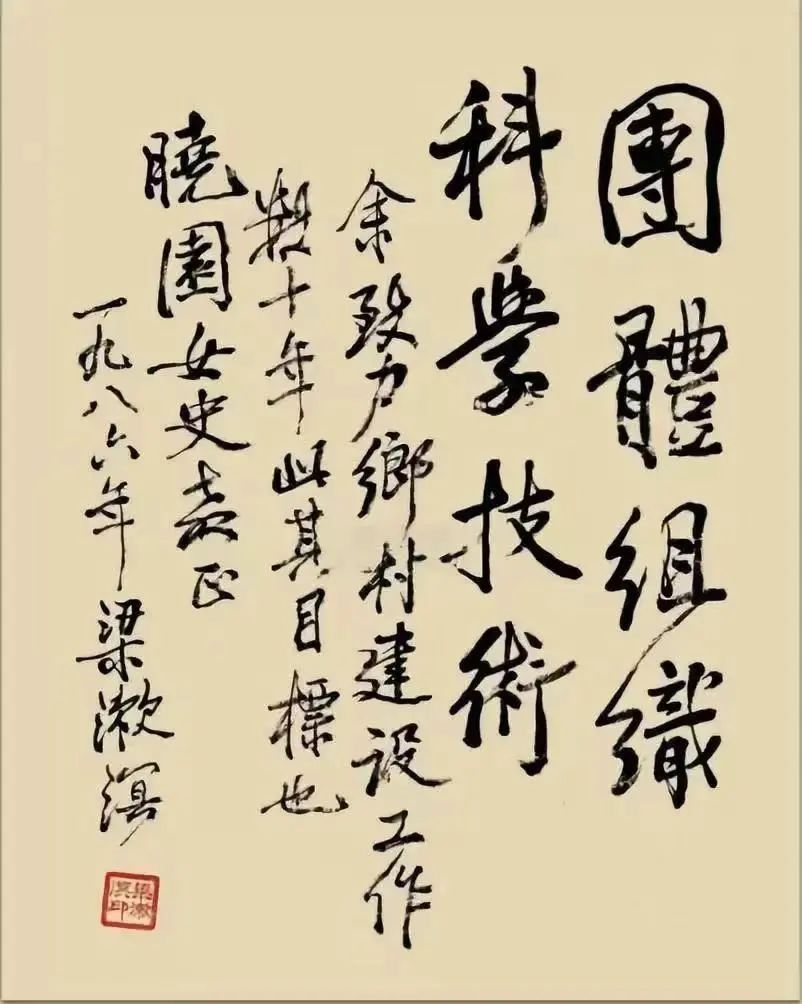 團體組織
科學技術
余致力鄉村建设工作
數十年此其目標也
曉園女史嘉正
一九八六年梁漱溟
梁漱溟印